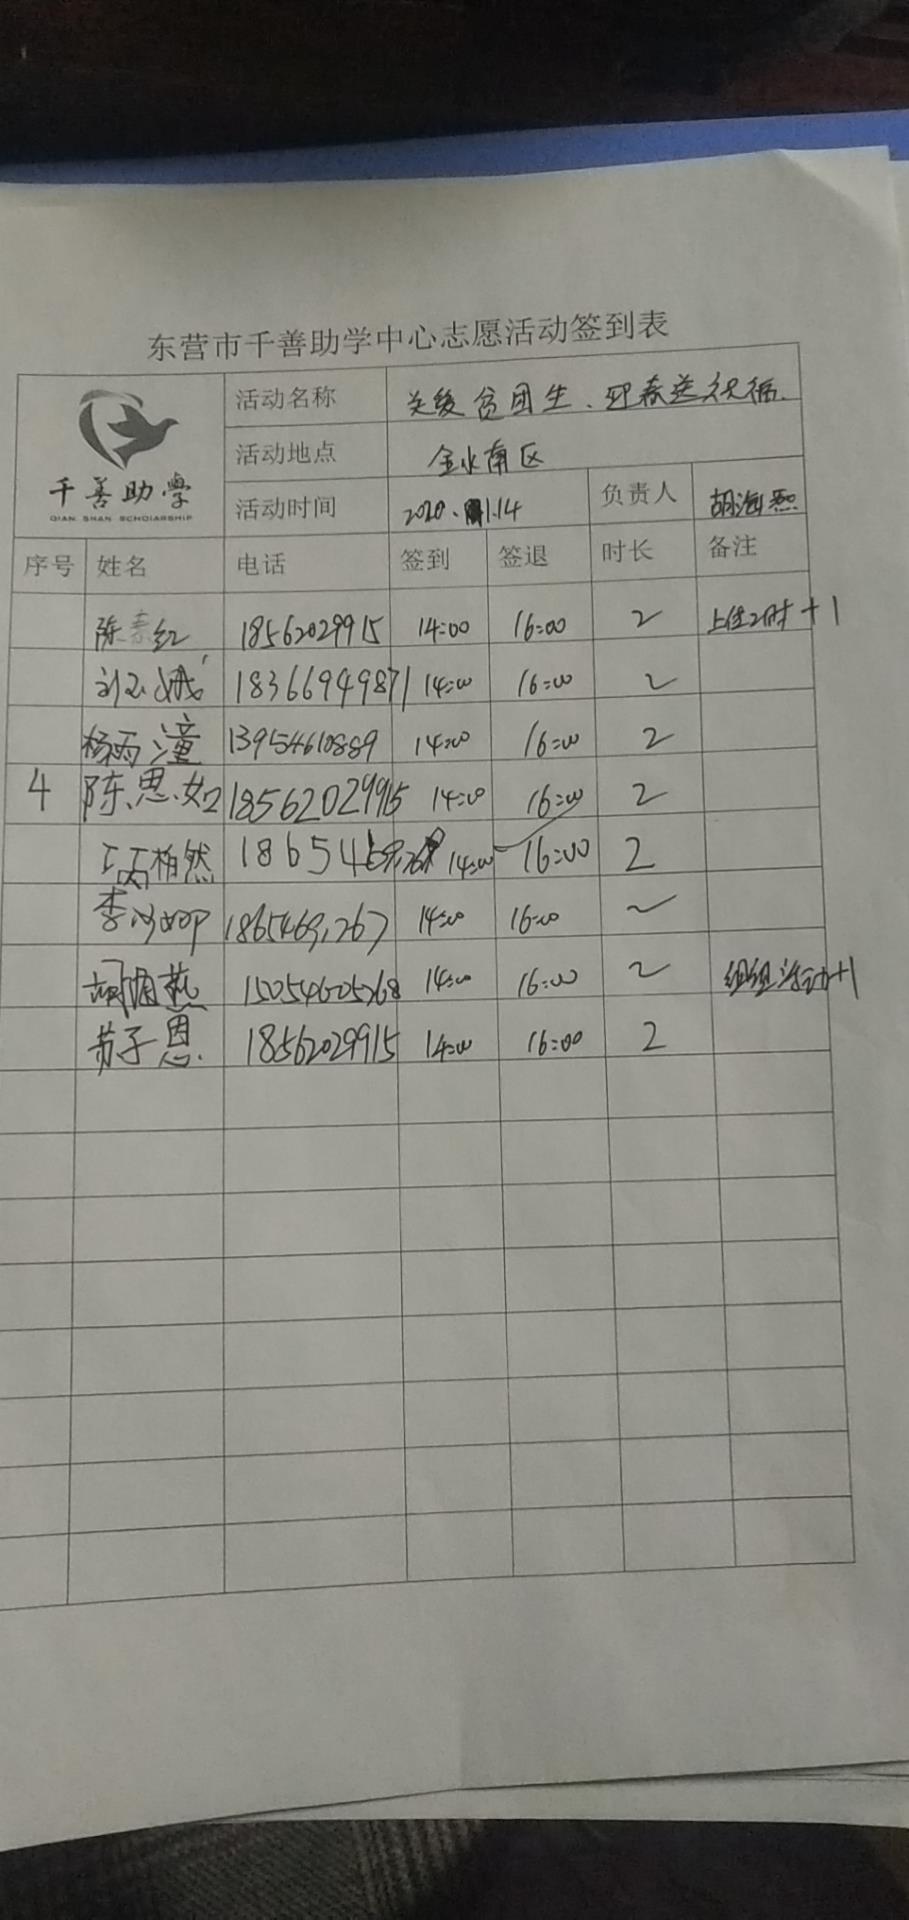 东营市千善助学中心志愿活动签到表
千善助学
QIAN SHAN SCHOLARSHIP
活动名称 关爱贫困生、迎春送祝福
活动地点 金水南区
活动时间 2020.1.14 负责人 胡海燕
序号 姓名 电话 签到 签退 时长 备注
陈素红 18562029915 14:00 16:00 2 +1
刘玉娥 18366949871 14:00 16:00 2
杨雨潼 13954610889 14:00 16:00 2
4 陈思如 18562029915 14:00 16:00 2
柏然 14:00 16:00 2
李 14:00 16:00 2
胡海燕 15054605268 14:00 16:00 2 组组活动+1
苏子恩 18562029915 14:00 16:00 2